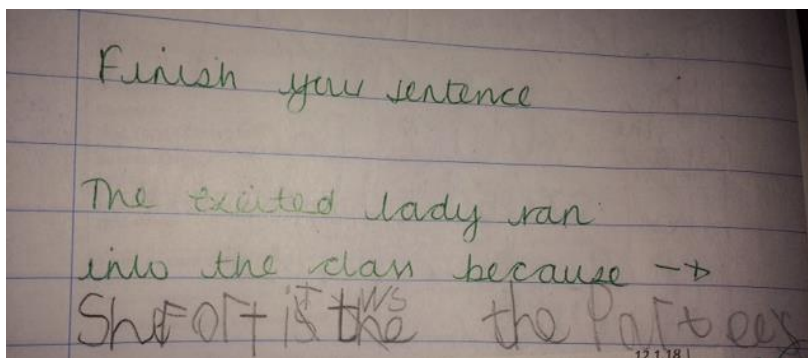 Finish your sentence
The excited lady ran
into the class because →
She fort it WS the Partees
12.1.18